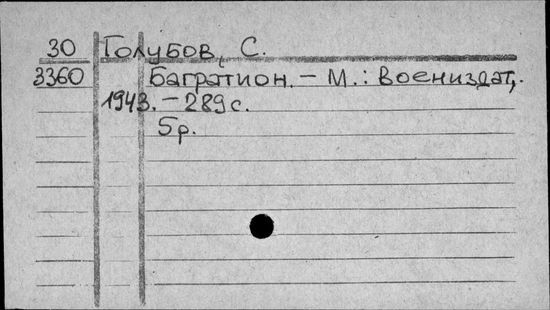 30 Голубов, С.
3360 Багратион. – М.: Воениздат,
1943. – 289 с.
5р.